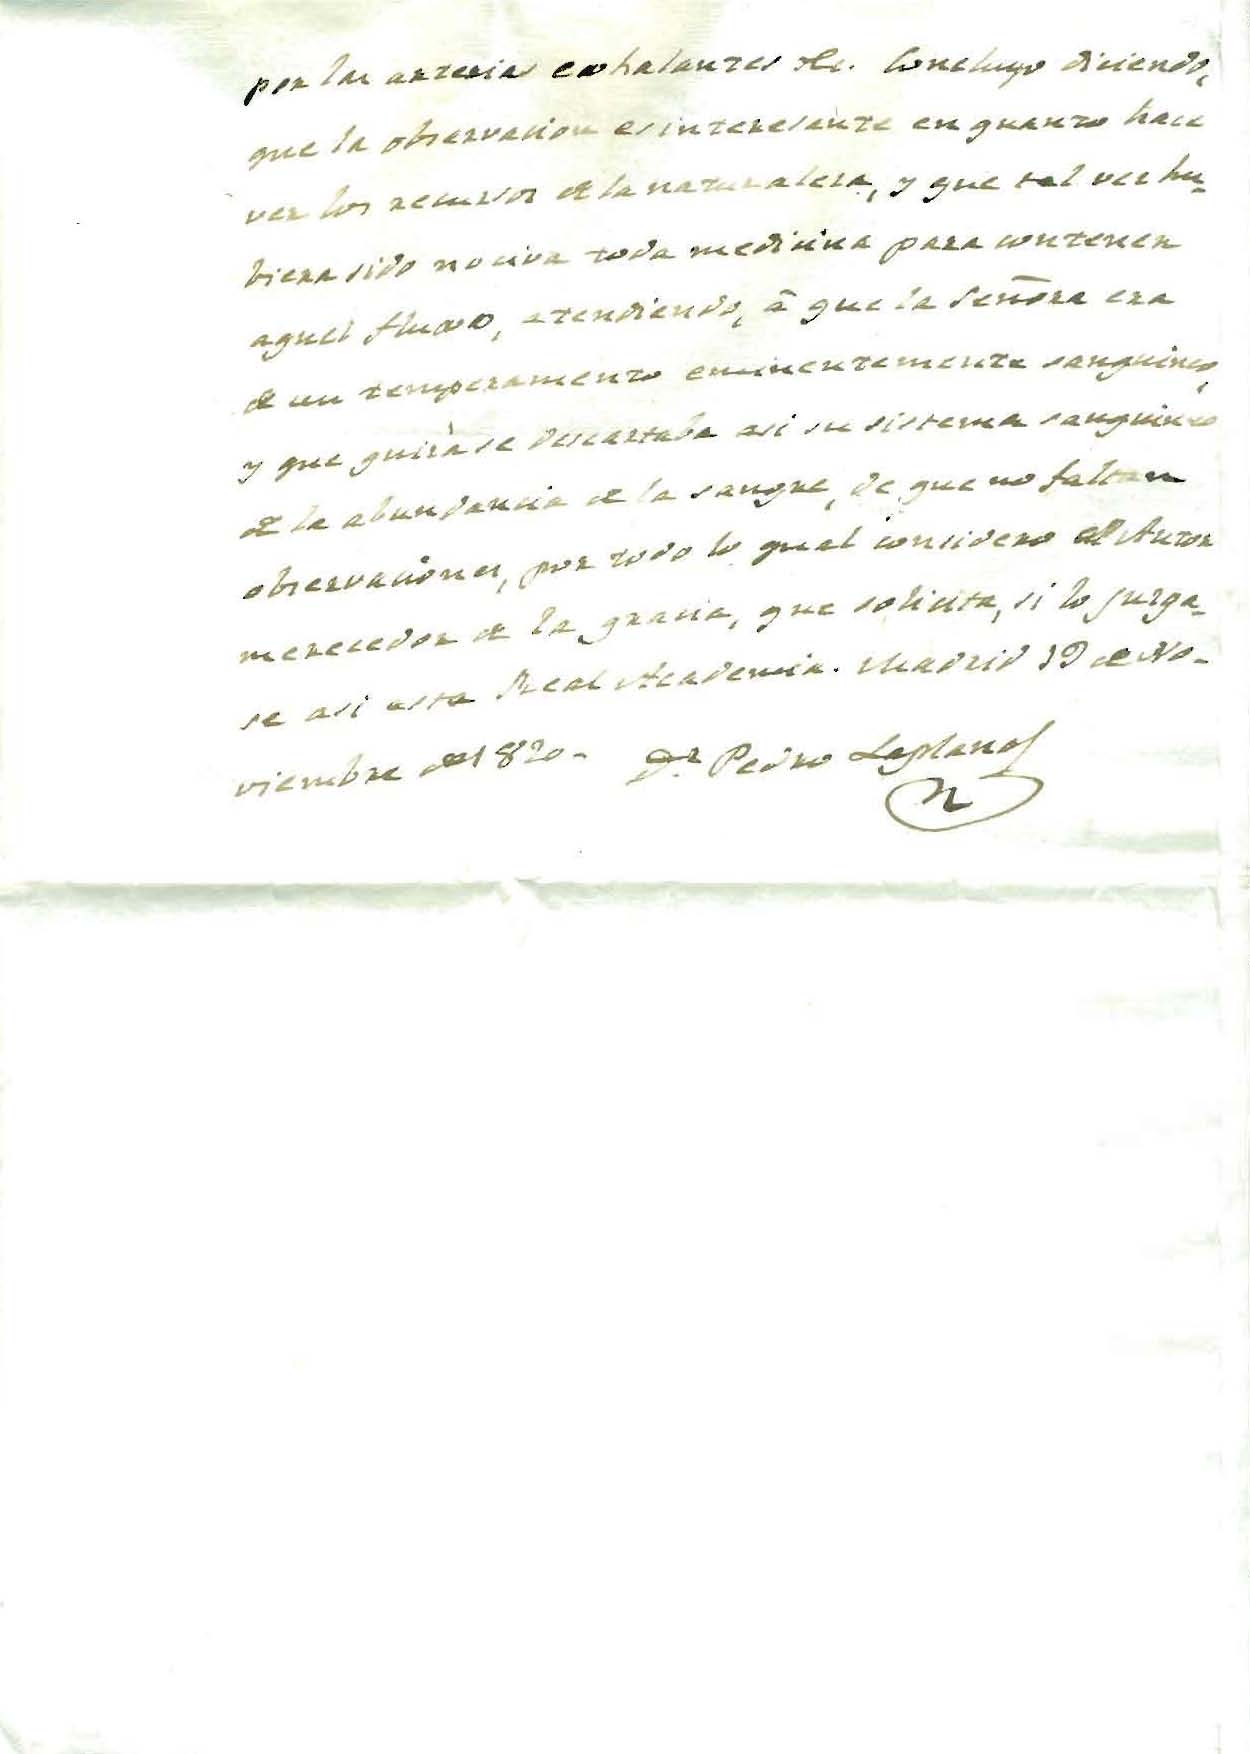 por las arterias exhalantes &c. Concluyo diciendo,
que la observacion es interesante en quanto hace
ver los recursos de la naturaleza, y que tal vez hu-
biera sido nociva toda medicina para contener
aquel fluxo, atendiendo, á que la Señora era
de un temperamento eminentemente sanguineo,
y que quizà se descartaba asi su sistema sanguineo
de la abundancia de la sangre, de que no faltan
observaciones, por todo lo qual considero al Autor
merecedor de la gracia, que solicita, si lo juzga-
se asi esta Real Academia. Madrid 19 de No-
viembre de 1820. Dr. Pedro Laplana